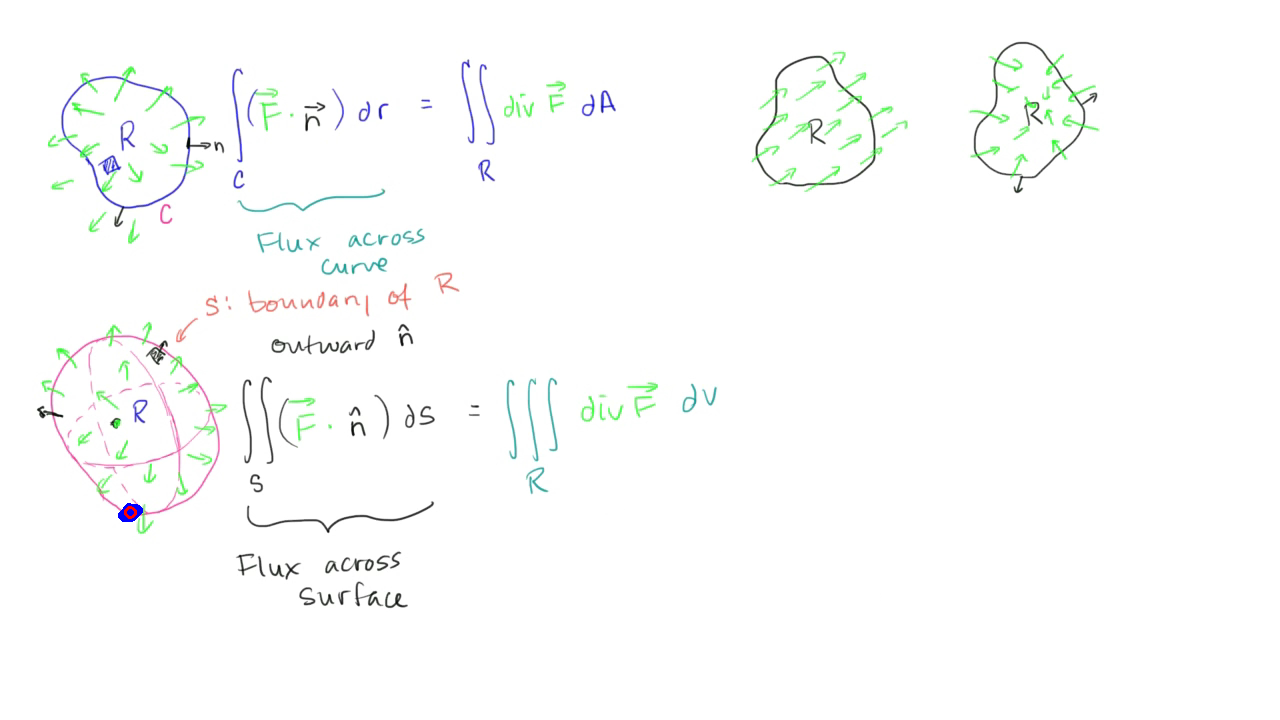 ∫_C (F⃗ · n⃗) dr = ∬_R div F⃗ dA
R
n
C
Flux across
curve
R
R
S: boundary of R
outward n̂
R
∬_S (F⃗ · n̂) dS = ∭_R div F⃗ dV
Flux across
surface